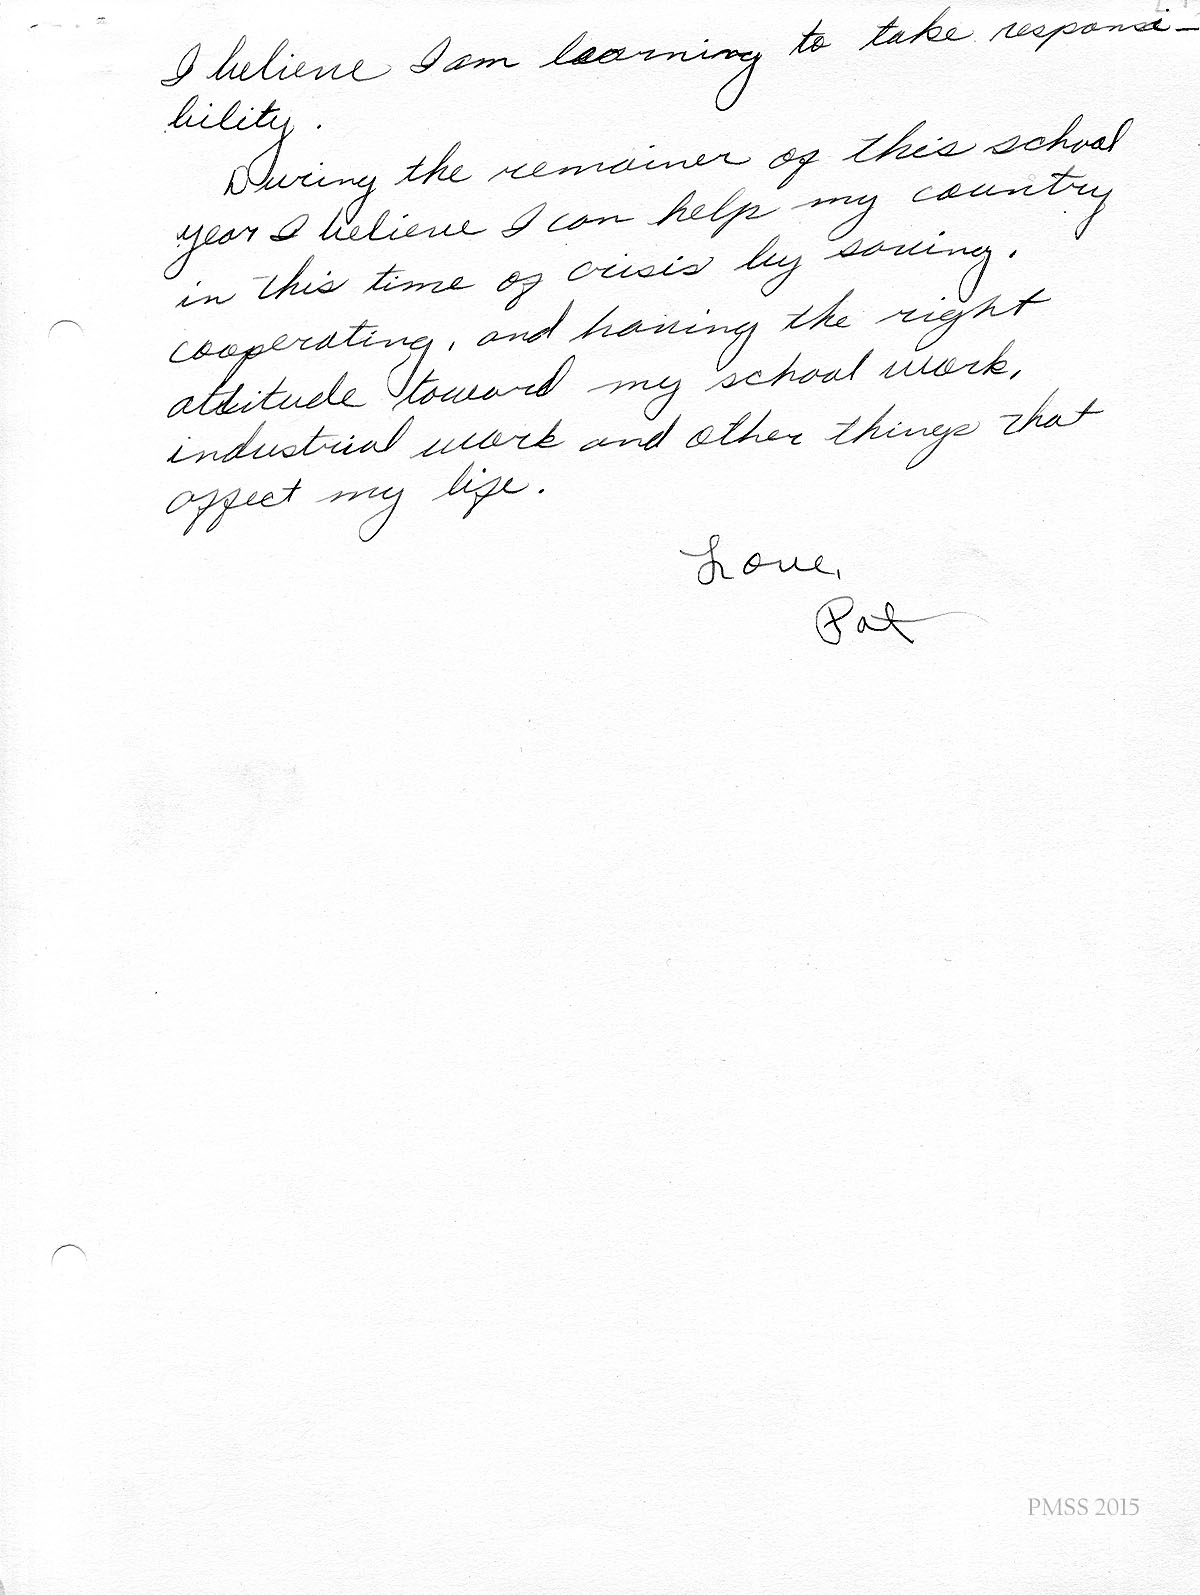 I believe I am learning to take responsi-
bility.
During the remainer of this school
year I believe I can help my country
in this time of crisis by saving,
cooperating, and having the right
attitude toward my school work,
industrial work and other things that
affect my life.
Love,
Pat
PMSS 2015